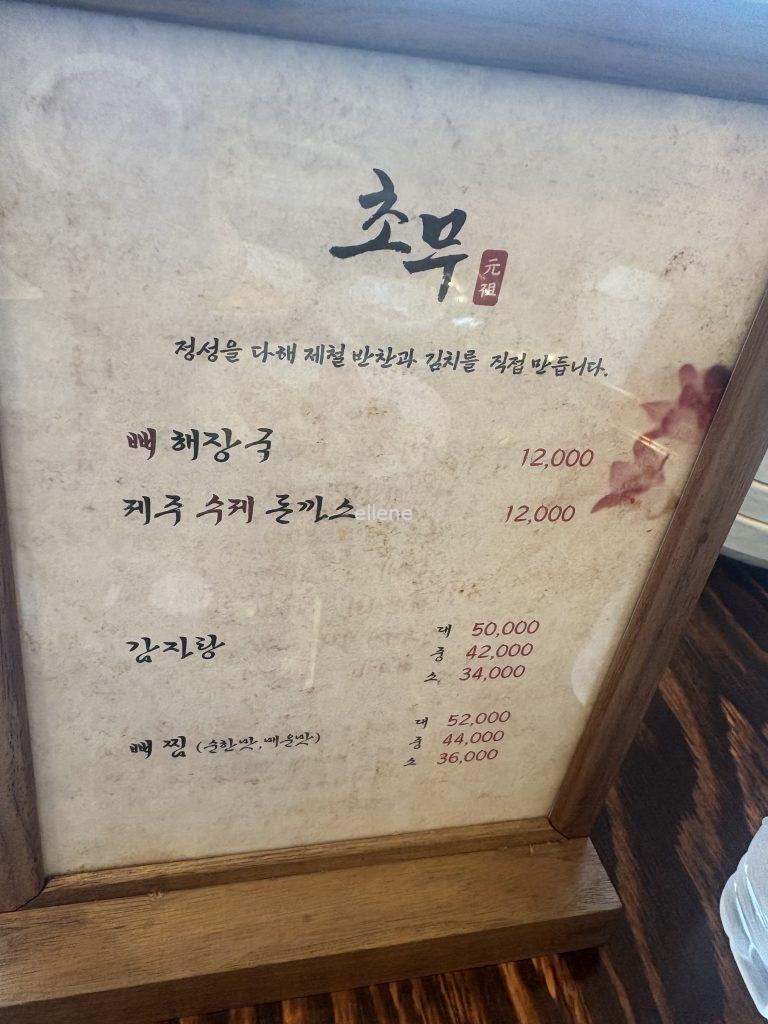 초무
元祖
정성을 다해 제철 반찬과 김치를 직접 만듭니다.
뼈 해장국 12,000
제주 수제 돈까스 12,000
ellene
감자탕 대 50,000
중 42,000
소 34,000
뼈 찜 (순한맛, 매운맛) 대 52,000
중 44,000
소 36,000